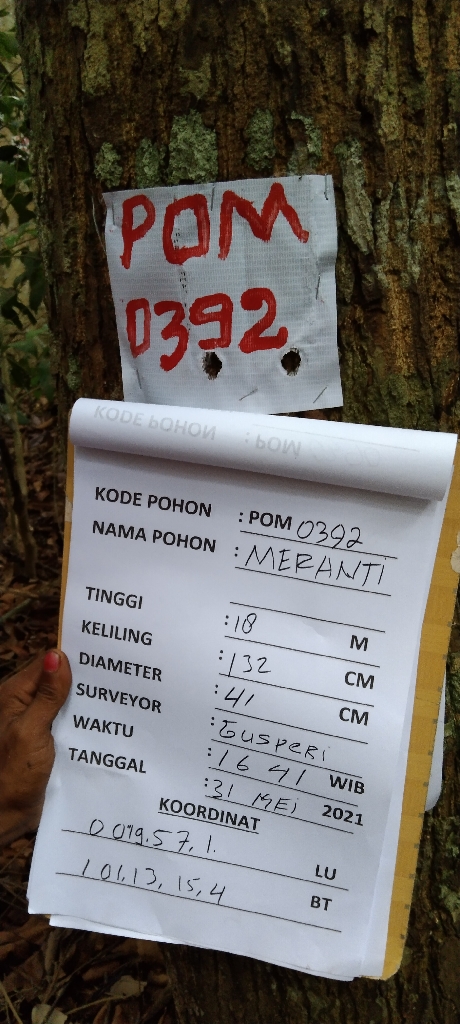 POM
0392
KODE POHON : POM
KODE POHON : POM 0392
NAMA POHON : MERANTI
TINGGI : 18 M
KELILING : 132 CM
DIAMETER : 41 CM
SURVEYOR : GUSPERI
WAKTU : 16 41 WIB
TANGGAL : 31 MEI 2021
KOORDINAT
0 019.57,1. LU
101.13,15,4 BT